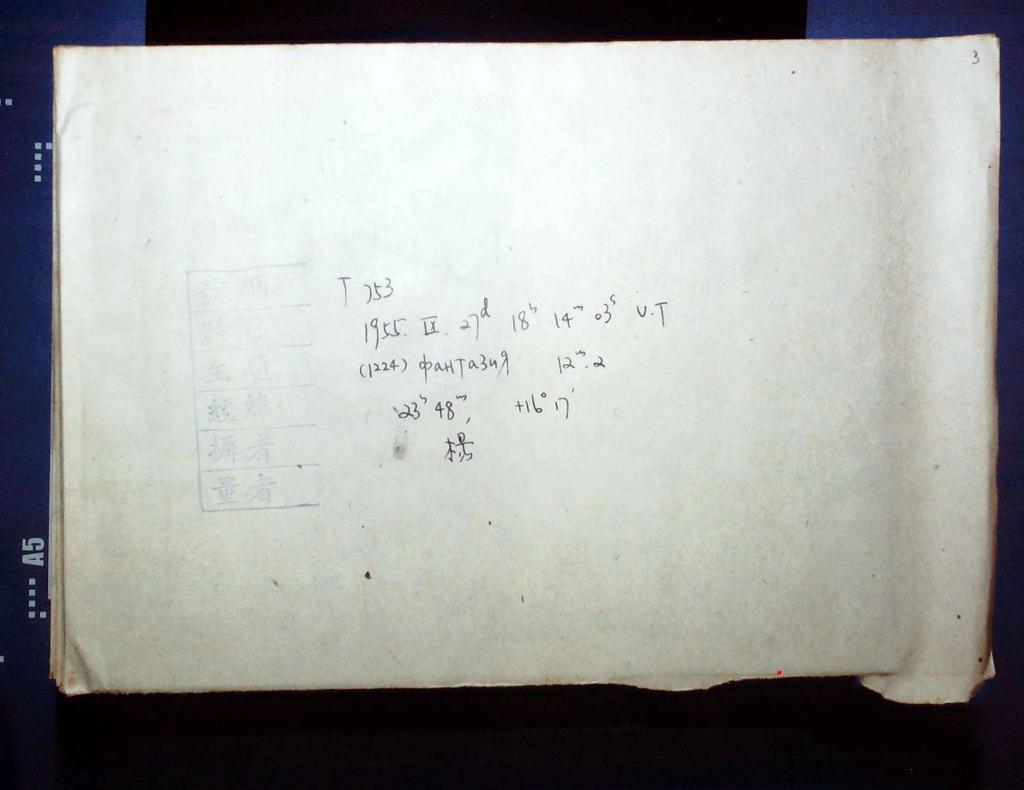 3
號碼
主題
攝者
量者
T 753
1955. IX. 27ᵈ 18ʰ 14ᵐ 03ˢ U.T
(1224) Фантазия 12ᵐ.2
23ʰ 48ᵐ, +16° 17′
楊
A5